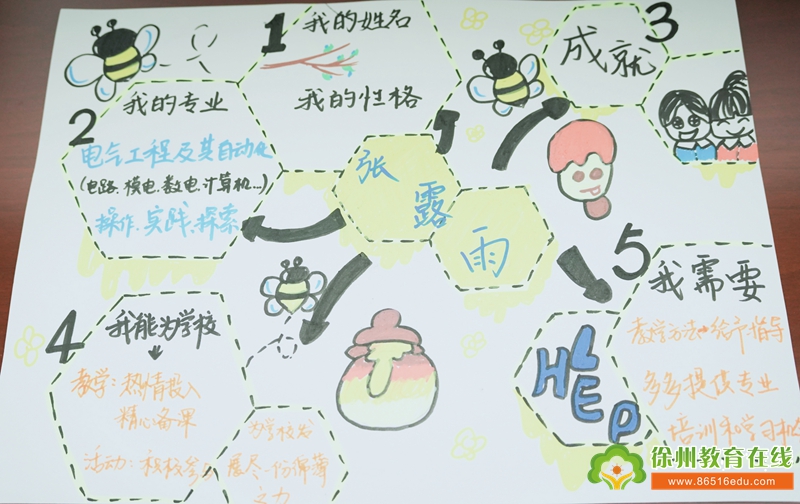 1
我的姓名
我的性格
2
我的专业
电气工程及其自动化
(电路.模电.数电.计算机...)
操作.实践.探索
张
露
雨
3
成就
4
我能为学校
教学:热情投入
精心备课
活动:积极参
为学校发
展尽一份绵薄
之力
5
我需要
HLEP
教学方法 给予指导
多多提供专业
培训和学习机
徐州教育在线
www.86516edu.com